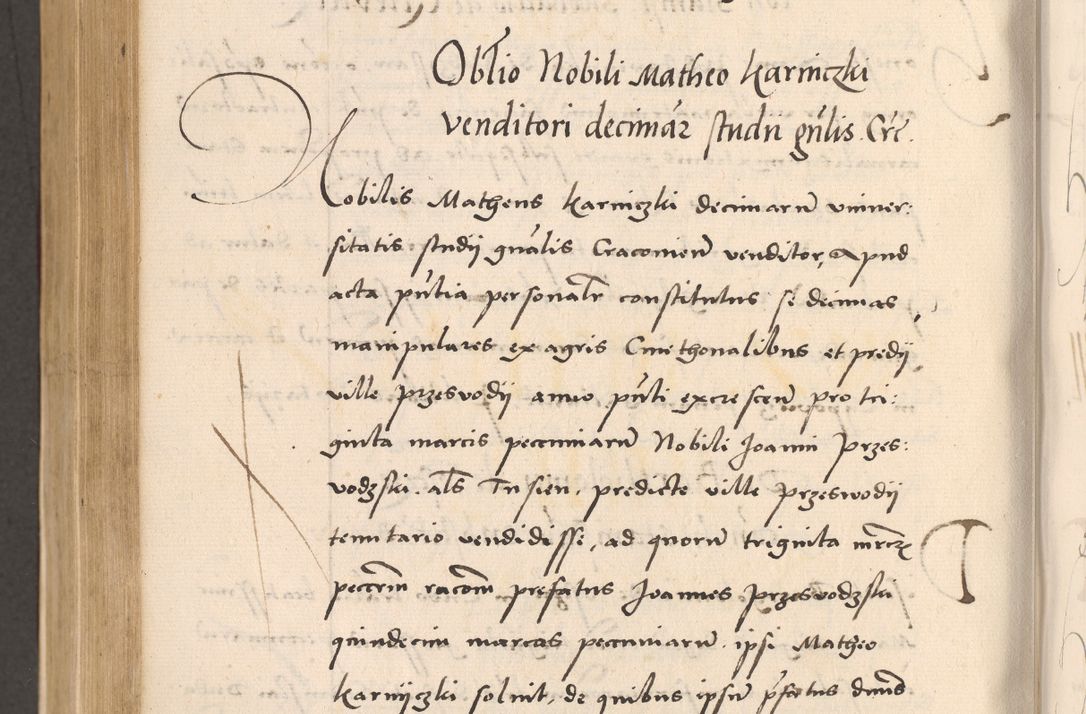 Oblio Nobili Matheo Karniczki
venditori decimar studii gnlis Cre.
Nobilis Matheus Karniczki decimaru univer:
sitatis studii gnalis Cracovien venditor, Apud
acta pntia personalr constitutus se decimas
manipulares ex agris Cmethonalibus et predii
ville Przesvodii anno pnti excrescen pro tri:
ginta marcis pecuniaru Nobili Joanni Przes:
vodzski. als predicte ville Przeswodii
tenutario vendidisse, ad quoru triginta mrcr
peccrm racom prefatus Joannes Przesvodzski
quindecim marcas pecuniaru ipsi Matheo
Karniiczki solvit, de quibus ipsu pfatus dnus